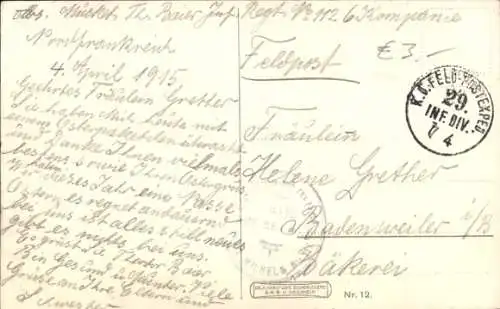 Abs. Musket. Th. Baier Inf. Regt. No 112 6 Kompanie
Nordfrankreich
4. April 1915
Geehrtes Fräulein Grether
Sie haben mich heute mit
einem Osterpaketchen
und danke Ihnen vielmals
bestens sowie Ihren Ostergruss
dieses Jahr eine Nasse
Ostern es regnet andauernd
bei uns ist alles still neues
gibt es nichts bei uns.
Es grüsst Theodor Baier
Bin Gesund u. Munter. Viele
Grüsse an Ihre Eltern und
Schwester
Feldpost
€ 3.-
K.D. FELD-POSTEXPED
29.
INF. DIV.
7 4
Fräulein
Helene Grether
Badenweiler i/B
Bäkerei
Nr. 12.